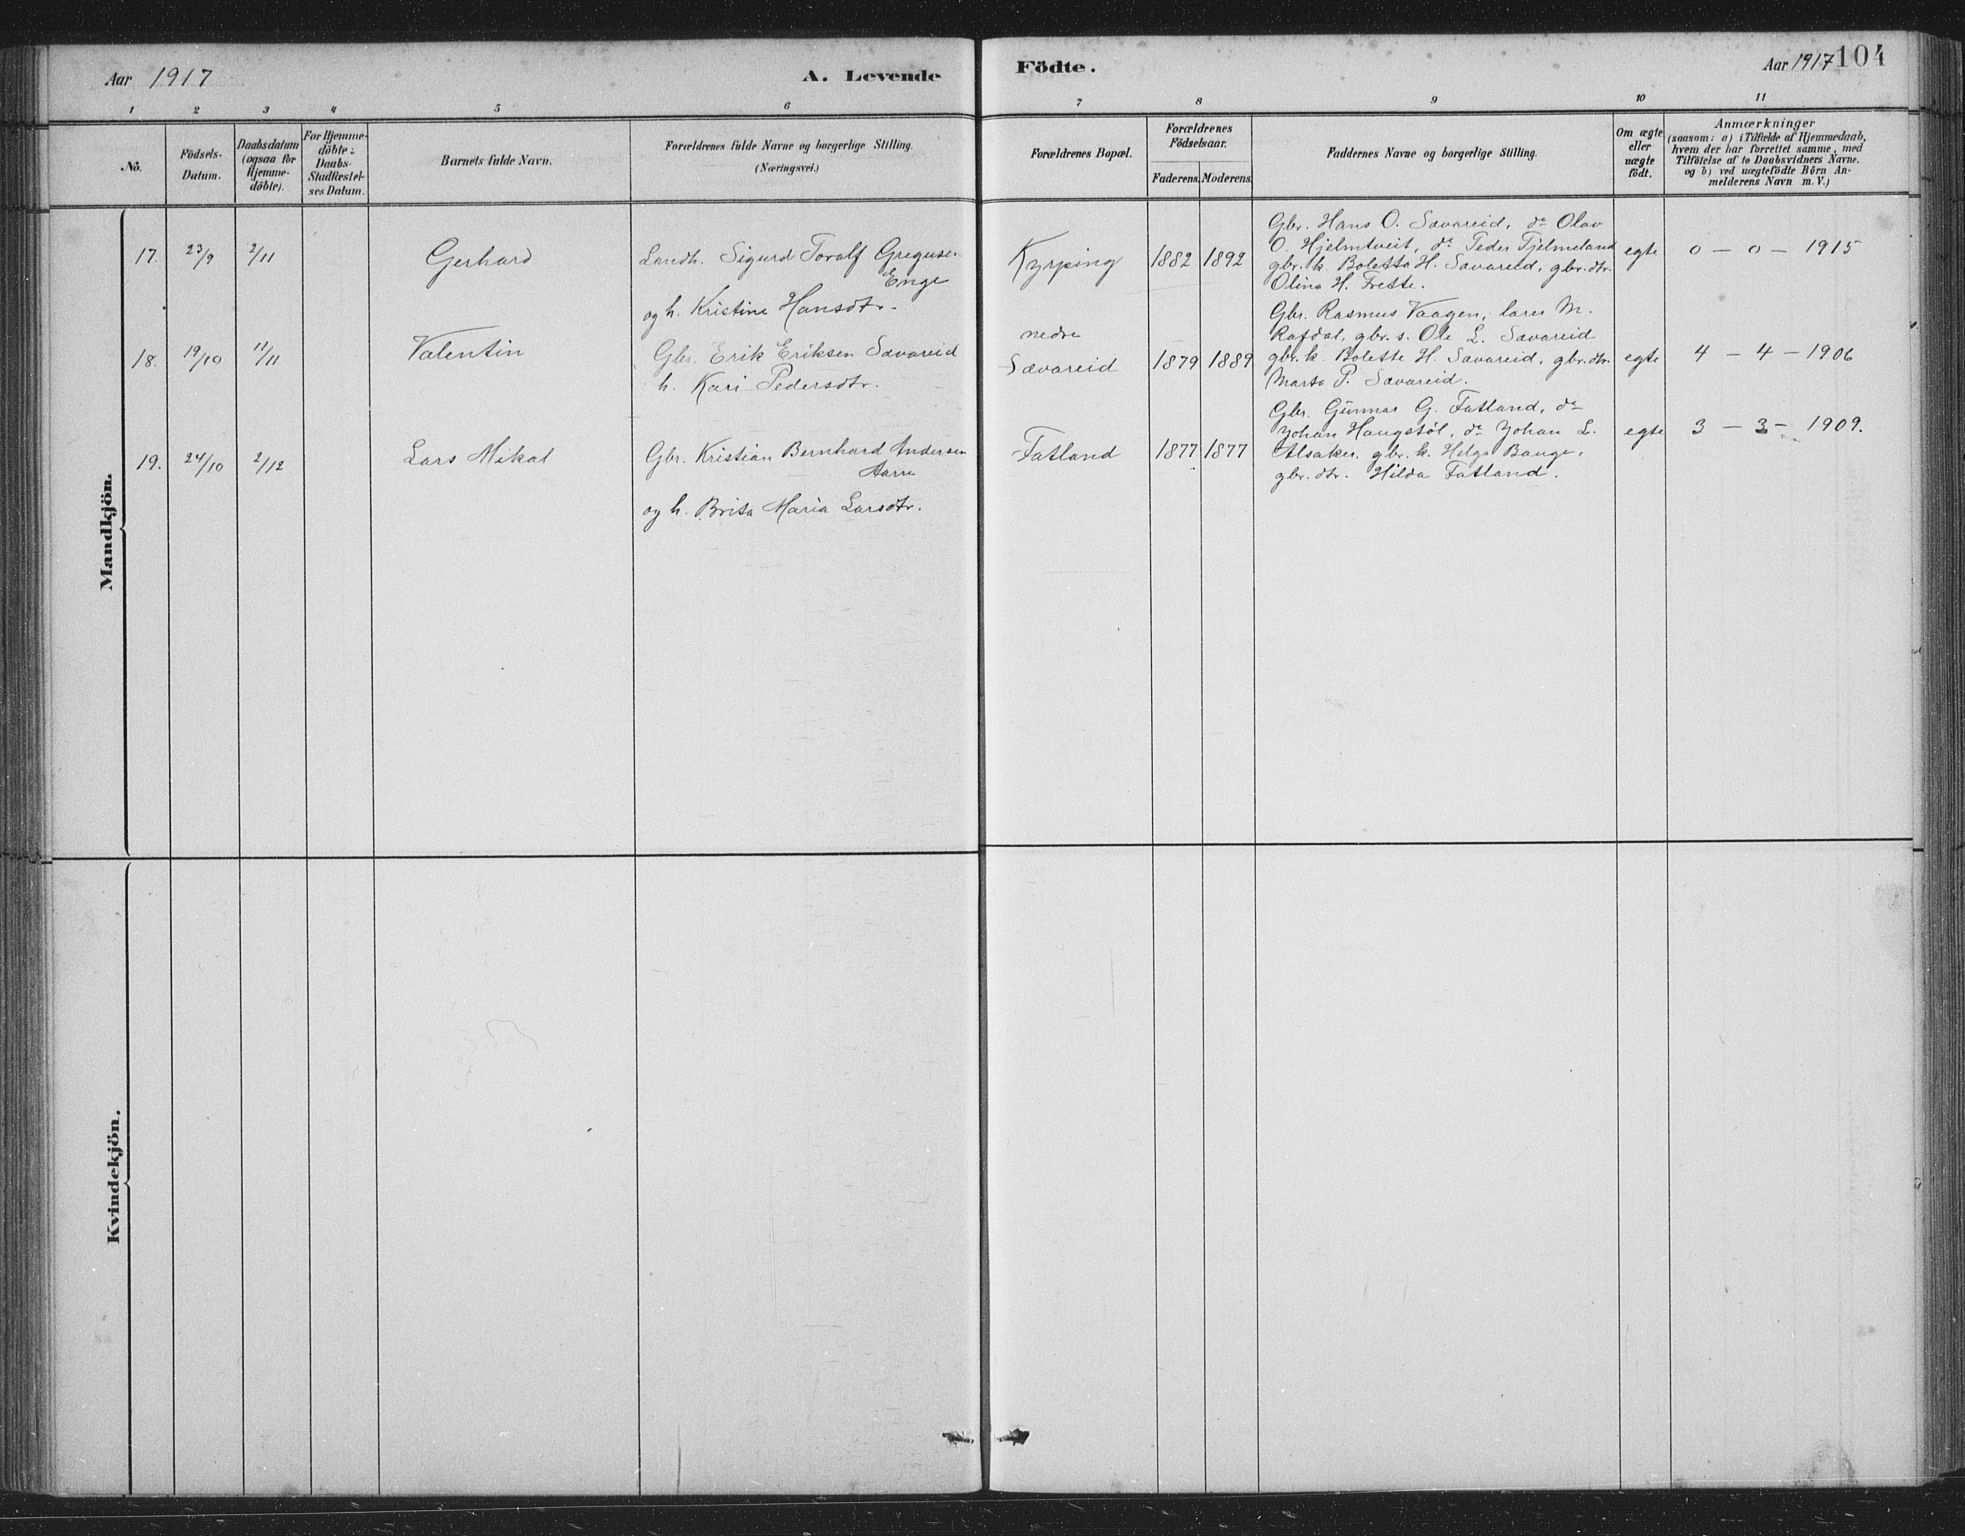 Aar 1917
A. Levende
Födte.
Aar 1917 104
1 2 3 4 5 6 7 8 9 10 11
No.
Födsels-
Datum.
Daabsdatum
(ogsaa for
Hjemme-
döbte).
For Hjemme-
döbte:
Daabs-
Stadfæstel-
ses Datum.
Barnets fulde Navn.
Forældrenes fulde Navne og borgerlige Stilling.
(Næringsvei.)
Forældrenes Bopæl.
Forældrenes
Födselsaar.
Faderens. Moderens.
Faddernes Navne og borgerlige Stilling.
Om ægte
eller
uægte
födt.
Anmærkninger
(saasom: a) i Tilfælde af Hjemmedaab,
hvem der har forrettet samme, med
Tilföielse af to Daabsvidners Navne.
og b) ved uægtefödte Börn An-
melderens Navn m. V.)
Mandkjön.
17. 23/9 2/11
Gerhard
Landh. Sigurd Toralf Gregusen
Enge
og h. Kristine Hansdtr.
Kyrping
1882 1892
Gbr. Hans O. Sævareid, do Olav
O. Hjelmtveit, do Peder Fjelmeland
gbr. k. Bolette H. Sævareid, gbr. dtr.
Olina H. Frette.
egte
0 – 0 – 1915
18. 19/10 11/11
Valentin
Gbr. Erik Eriksen Sævareid
h. Kari Pedersdtr.
nedre
Sævareid
1879 1889
Gbr. Rasmus Vaagen, lærer M.
Rafdal, gbr. s. Ole L. Sævareid
gbr. k. Bolette H. Sævareid, gbr. dtr.
Marta P. Sævareid.
egte
4 – 4 – 1906
19. 24/10 2/12
Lars Mikal
Gbr. Kristian Bernhard Andersen
Aarre
og h. Brita Maria Larsdtr.
Fatland
1877 1877
Gbr. Gunnar G. Fatland, do
Johan Haugstöl, do Johan L.
Alsaker, gbr. k. Helga Bauge,
gbr. dtr. Hilda Fatland.
egte
3 – 3 – 1909.
Kvindekjön.